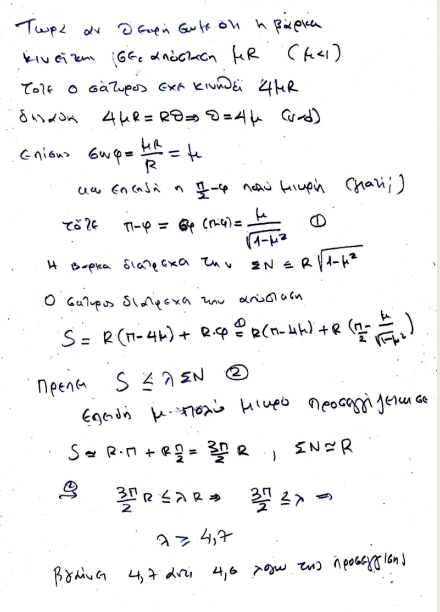 Τώρα αν θεωρήσουμε ότι η βάρκα
κινείται σε απόσταση μR (μ<1)
τότε ο σάτυρος έχει κινηθεί 4μR
δηλαδή 4μR = Rθ ⇒ θ = 4μ (rad)
επίσης συνφ = μR/R = μ
και επειδή η π/2 - φ πολύ μικρή (γιατί;)
τότε π-φ = εφ(π-φ) = μ/√(1-μ²) ①
Η βάρκα διατρέχει την ΣΝ = R√(1-μ²)
Ο σάτυρος διατρέχει την απόσταση
S = R(π-4μ) + R·φ ①= R(π-4μ) + R(π/2 - μ/√(1-μ²))
Πρέπει S ≤ λΣΝ ②
Επειδή μ πολύ μικρό προσεγγίζεται σε
S ≃ R·π + Rπ/2 = 3π/2 R , ΣΝ ≃ R
②⇒ 3π/2 R ≤ λR ⇒ 3π/2 ≤ λ ⇒
λ ≥ 4,7
Βγαίνει 4,7 αντί 4,6 λόγω της προσέγγισης